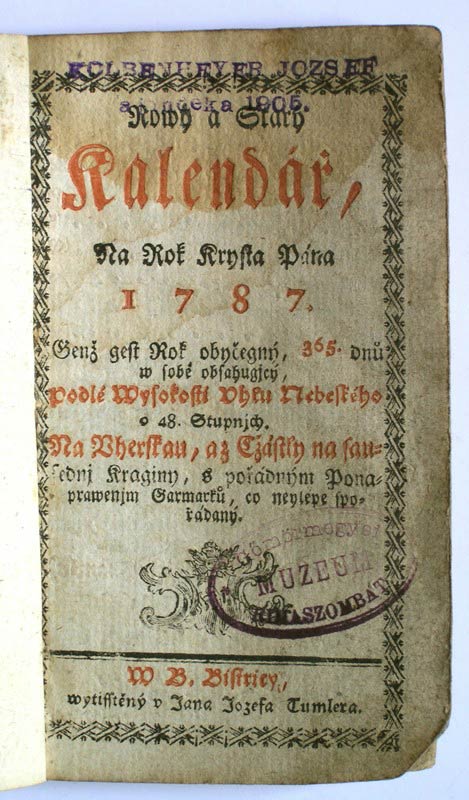 KOLBENHEYER JOZSEF
ajándéka 1905.
Nowy a Starý
Kalendář,
Na Rok Krysta Pána
1787.
Genž gest Rok obyčegný, 365. dnů
w sobě obsahugjcý,
podlé Wysokosti Uhlu Nebeského
o 48. Stupnjch.
Na Uherskau, az Cžástky na sau-
sednj Kraginy, s pořádným Pona-
prawenjm Garmarků, co neylepe spo-
řádaný.
Gömörmegyei
MUZEUM
RIMASZOMBAT
W B. Bistricy,
wytisstěný v Jana Jozefa Tumlera.